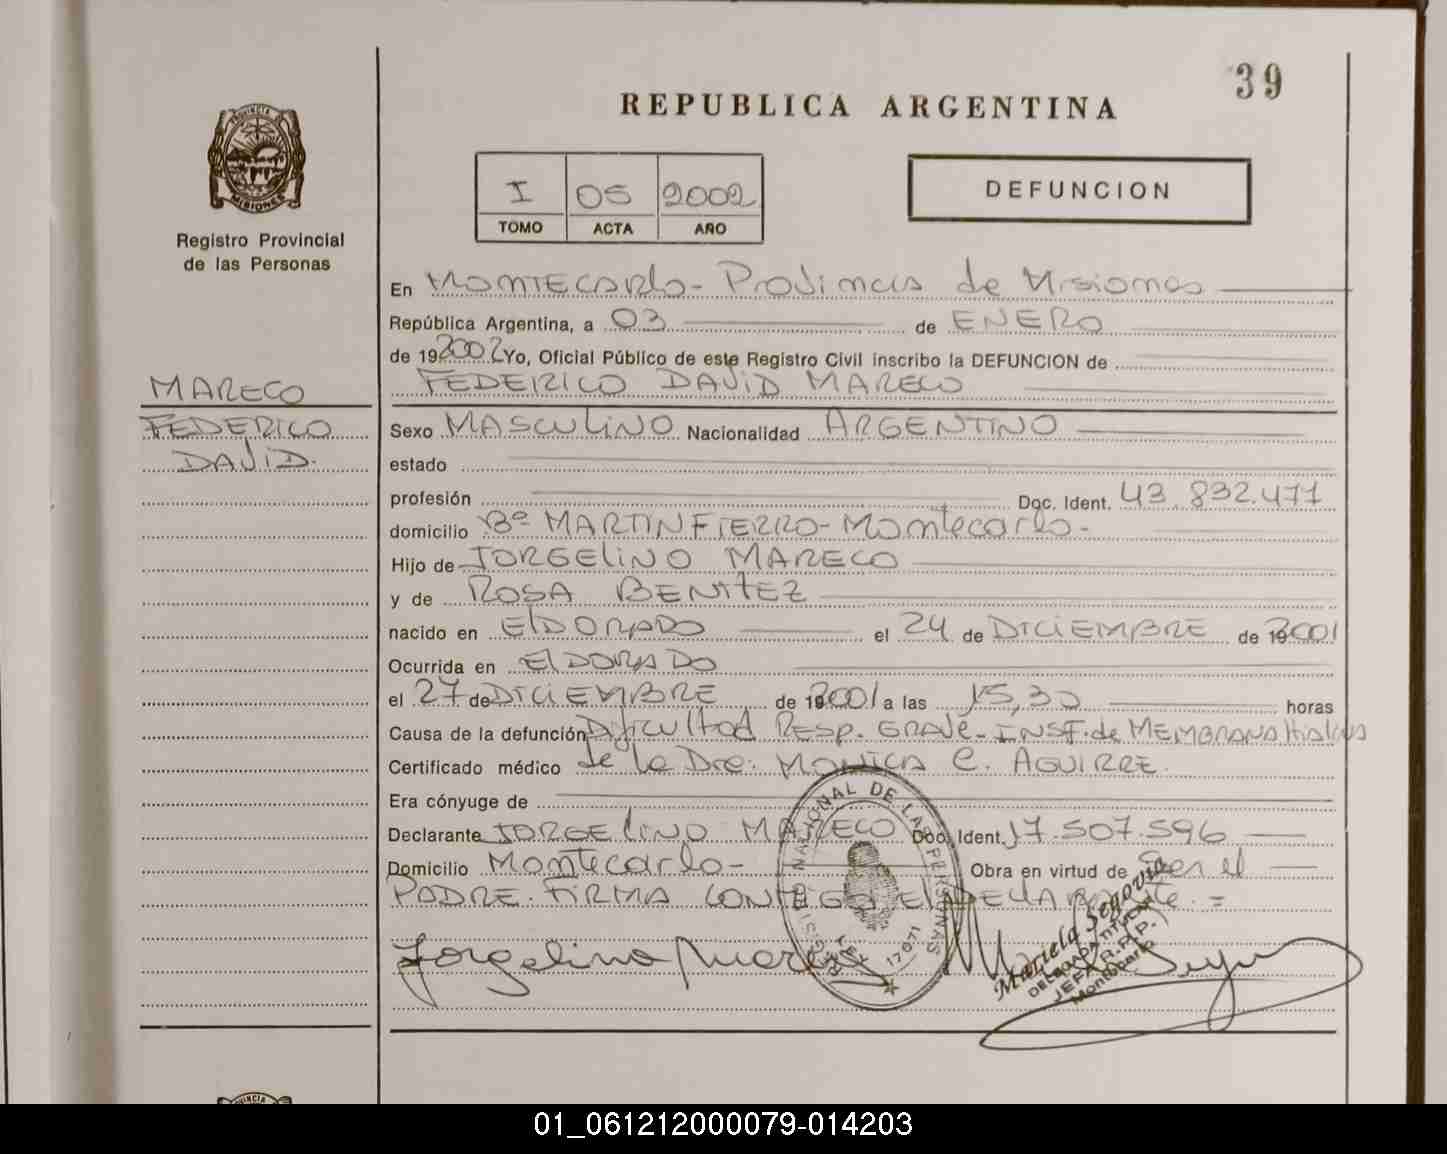 39
REPUBLICA ARGENTINA
PROVINCIA
MISIONES
Registro Provincial
de las Personas
I 05 2002
TOMO ACTA AÑO
DEFUNCION
En MONTECARLO - Provincia de Misiones
República Argentina, a 03 de ENERO
de 192002 Yo, Oficial Público de este Registro Civil inscribo la DEFUNCION de
FEDERICO DAVID MARECO
MARECO
FEDERICO
DAVID.
Sexo MASCULINO Nacionalidad ARGENTINO
estado
profesión Doc. Ident. 43.832.477
domicilio Bº MARTIN FIERRO - Montecarlo -
Hijo de JORGELINO MARECO
y de ROSA BENITEZ
nacido en ElDORADO el 24 de DICIEMBRE de 192001
Ocurrida en ElDORADO
el 27 de DICIEMBRE de 192001 a las 15,30 horas
Causa de la defunción Dificultad RESP. GRAVE - INSF. de MEMBRANA Hialina
Certificado médico de la Dra. MONICA C. AGUIRRE.
Era cónyuge de
Declarante JORGELINO MARECO Doc. Ident. 17.507.596
Domicilio Montecarlo - Obra en virtud de Ser el
PADRE. FIRMA CONMIGO El DECLARANTE. =
Jorgelino Mareco
REGISTRO NACIONAL DE LAS PERSONAS
LEY 17671
Mariela Segovia
DELEGADA TITULAR
JEFA R.P.P.
Montecarlo
PROVINCIA
01_061212000079-014203